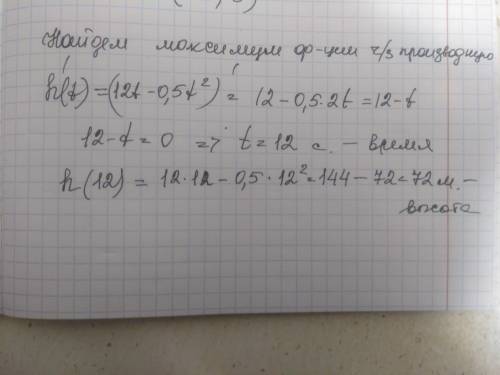 Найдем максимум ф-ции ч/з производную
h'(t) = (12t - 0,5t²)' = 12 - 0,5·2t = 12 - t
12 - t = 0 => t = 12 с. - время
h(12) = 12·12 - 0,5·12² = 144 - 72 = 72 м. -
высота